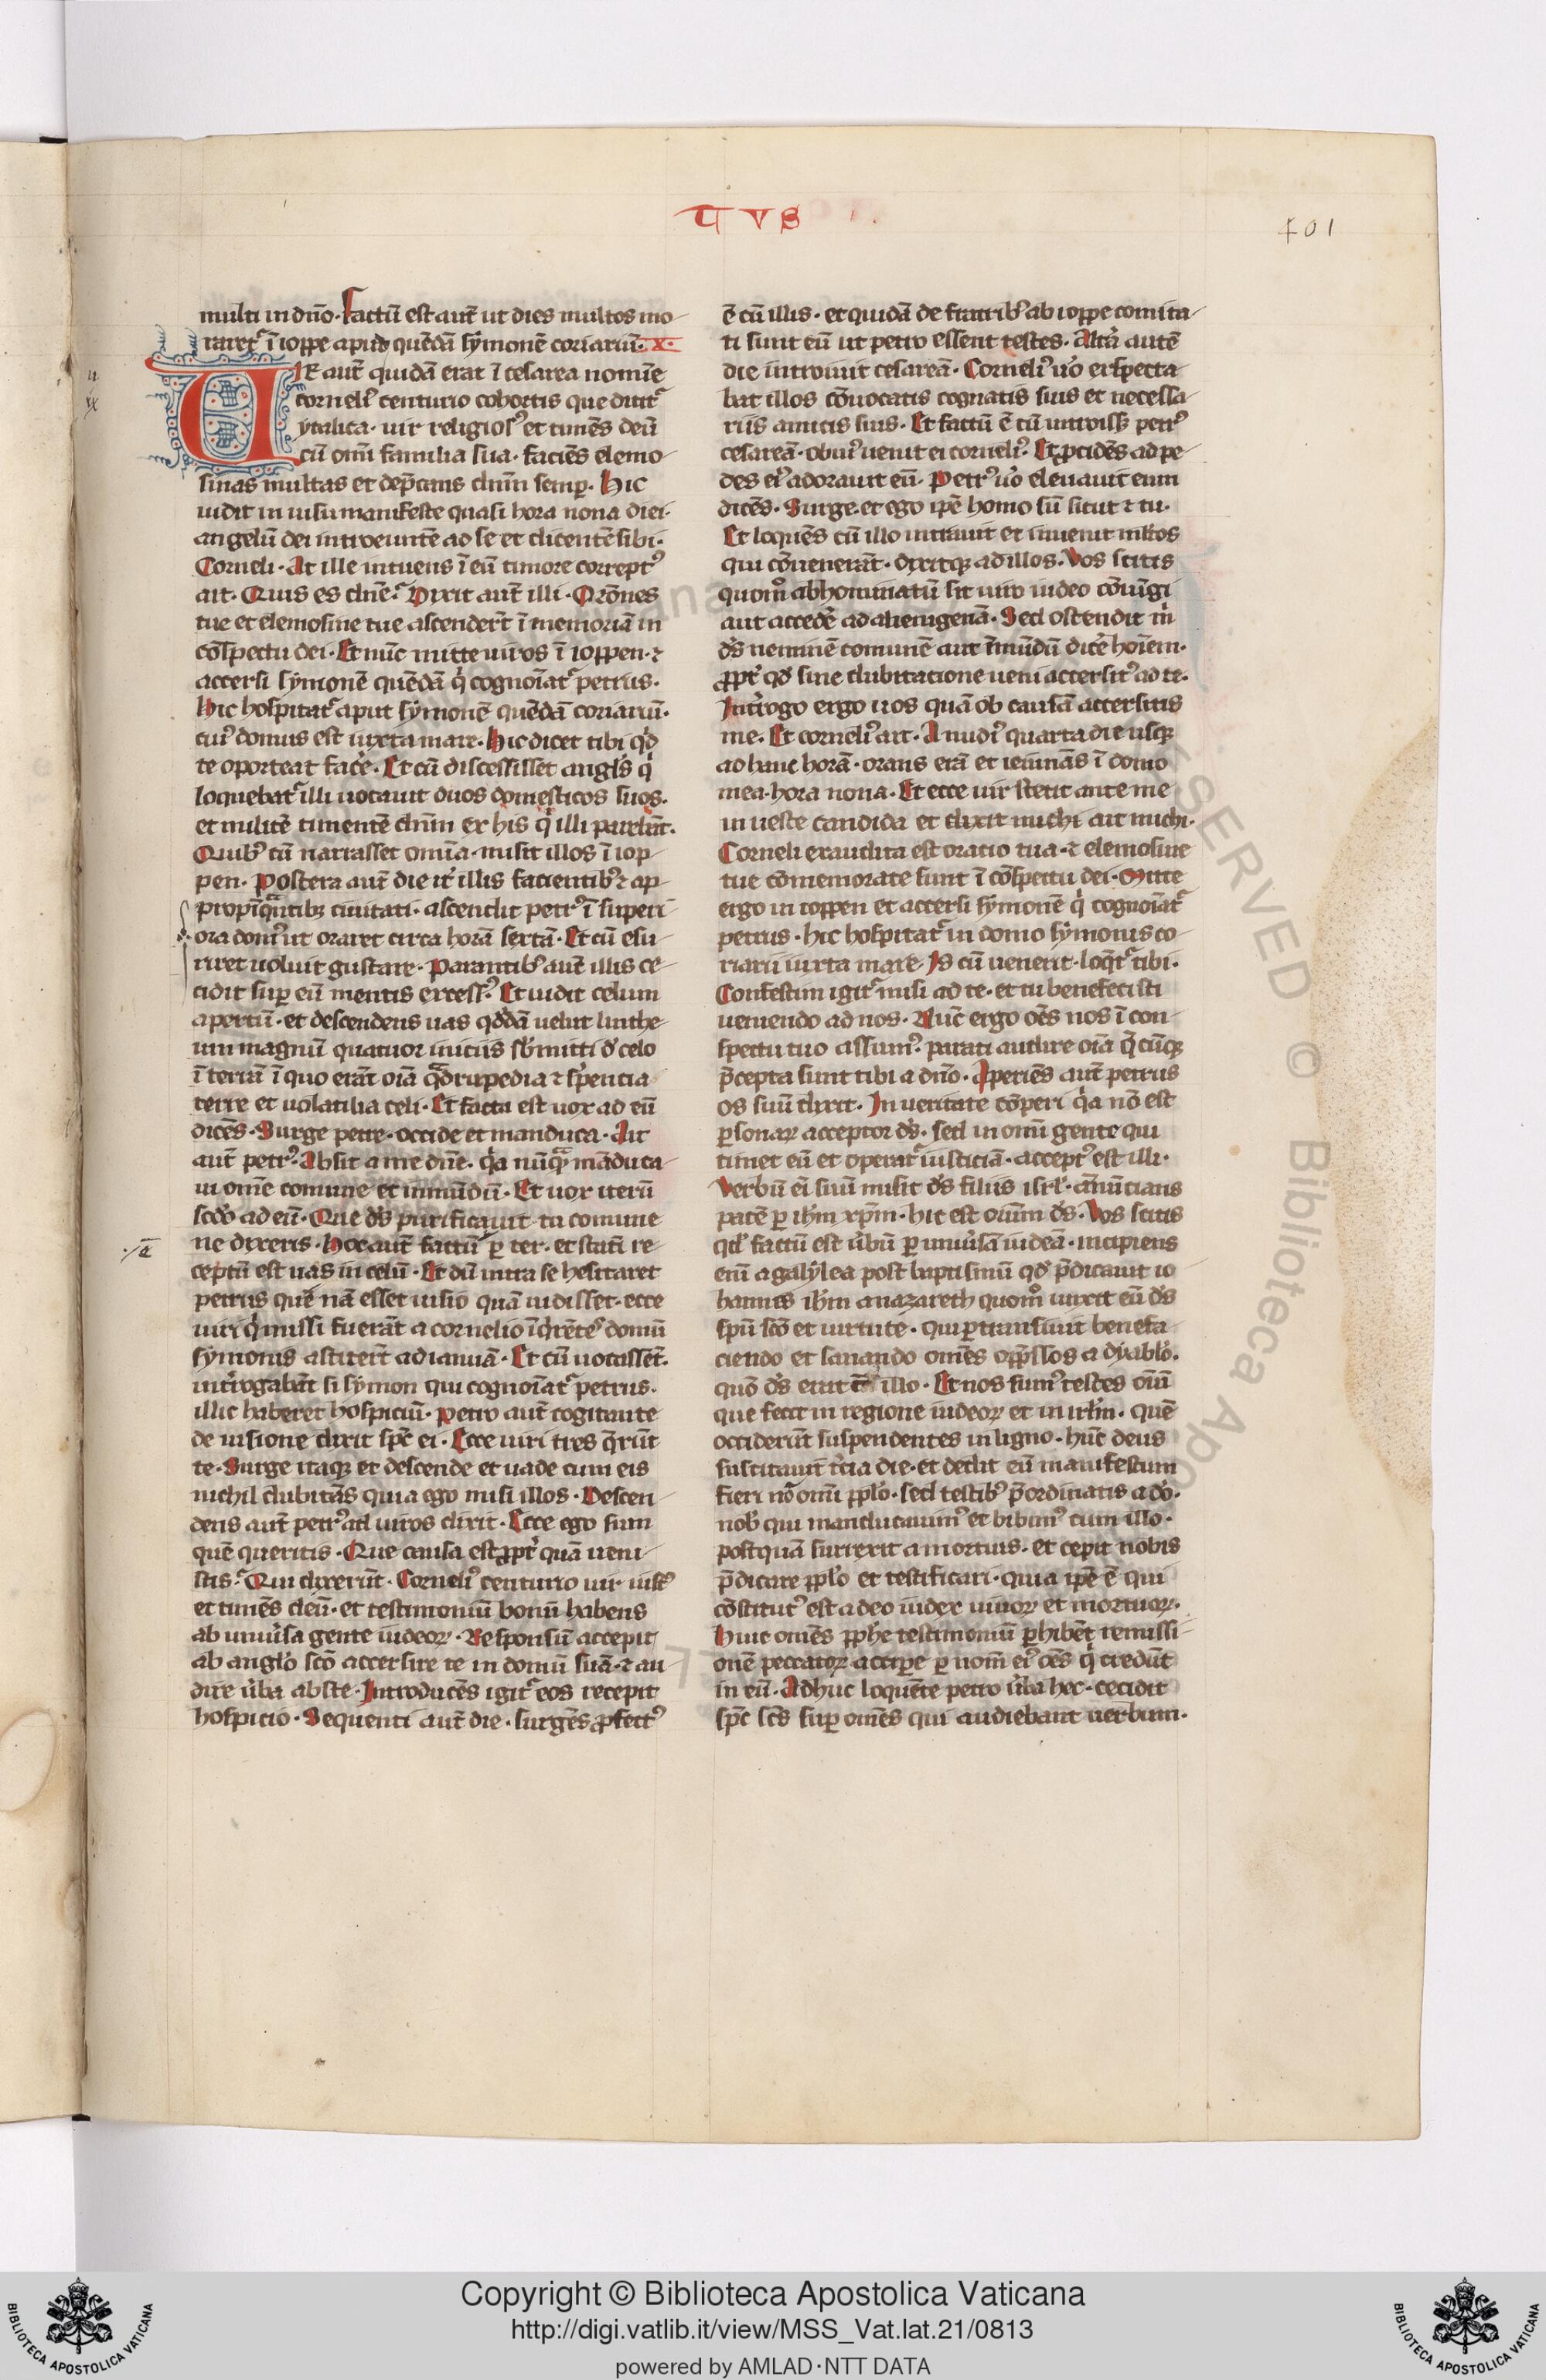 TVS
401
multi in dño. Factũ est aut̃ ut dies multos mo-
raret᷑ ĩ ioppe apud quẽdã sẏmonẽ coriariũ. x.
VIR aut̃ quidã erat ĩ cesarea nomĩe
cornelꝰ centurio cohortis que dicit᷑
ẏtalica. uir religiosꝰ et timẽs deũ
cũ om̃i familia sua. faciẽs elemo-
sinas multas et dep̃cans dñm semp̱. Hic
uidit in uisu manifeste quasi hora nona diei.
angelũ dei introeuntẽ ad se et dicentẽ sibi.
Corneli. At ille intuens ĩ eũ timore correptꝰ
ait. Quis es dñe. Dixit aut̃ illi. Orõnes
tue et elemosine tue ascendert̃ ĩ memoriã in
cõspectu dei. Et nũc mitte uiros ĩ ioppen. ⁊
accersi sẏmonẽ quẽdã q̇ cognoĩat᷑ petrus.
Hic hospitat᷑ aput sẏmonẽ quẽdã coriariũ.
cuiꝰ domus est iuxta mare. Hic dicet tibi qͥd
te oporteat face᷑. Et cũ discessisset angl̃s q̇
loquebat᷑ illi uocauit duos domesticos suos.
et militẽ timentẽ dñm ex his q̇ illi parebãt.
Quibꝰ cũ narrasset omĩa. misit illos ĩ iop-
pen. Postera aut̃ die it᷑ illis facientibꝰ ⁊ ap-
propĩqᷓntibꝫ ciuitati. ascendit petrꝰ ĩ superi-
ora domꝰ ut oraret circa horã sextã. Et cũ esu-
riret uoluit gustare. Parantibꝰ aut̃ illis ce-
cidit sup̱ eũ mentis excessꝰ. Et uidit celum
apertũ. et descendens uas qddã uelut linthe-
um magnũ quatuor iniciis sb̃mitti d̾ celo
ĩ terrã ĩ quo erãt oĩa qᷓdrupedia ⁊ s̾pencia
terre et uolatilia celi. Et facta est uox ad eũ
dicẽs. Surge petre. occide et manduca. Ait
aut̃ petrꝰ. Absit a me dñe. qͥa nũqᷓ mãduca-
ui om̃e comune et inmũdũ. Et uox iterũ
scd̾o ad eũ. Que dš purificauit tu comune
./ē
ne dixeris. Hoc aut̃ factũ ꝑ ter. et stati̾ re-
ceptũ est uas in celũ. Et dũ intra se hesitaret
petrus quẽnã esset uisio quã uidisset. ecce
uiri q̇ missi fuerãt a cornelio ĩq̾rẽtes domũ
sẏmonis astitert̃ ad ianuã. Et cũ uocassẽt.
int̾rogabãt si sẏmon qui cognoĩat᷑ petrus.
illic haberet hospiciũ. Petro aut̃ cogitante
de uisione dixit sp̃c ei. Ecce uiri tres q̃rũt
te. Surge itaqꝫ et descende et uade cum eis
nichil dubitãs quia ego misi illos. Descen-
dens aut̃ petrꝰ ad uiros dixit. Ecce ego sum
quẽ queritis. Que causa est ꝓpt̾ quã ueni-
stis. Qui dixerũt. Cornelꝰ centurio uir iustꝰ
et timẽs deũ. et testimoniũ bonũ habens
ab uniu̾sa gente iudeoꝝ. Responsũ accepit
ab angl̾o scõ accersire te in domũ suã. ⁊ au-
dire u̾ba abste. Introducẽs igit᷑ eos recepit
hospicio. Sequenti aut̃ die. surgẽs ꝓfectꝰ
ẽ cũ illis. et quidã de fratribꝰ ab ioppe comita-
ti sunt eũ ut petro essent testes. Altã autẽ
die introiuit cesareã. Cornelꝰ u̾o exspecta-
bat illos cõuocatis cognatis suis et necessa-
riis amicis suis. Et factũ ẽ cũ introissꝫ petrꝰ
cesareã. obuiꝰ uenit ei cornelꝰ. Et ꝓcidẽs ad pe-
des eiꝰ adorauit eũ. Petrꝰ u̾o eleuauit eum
dicẽs. Surge. et ego ip̃e homo sũ sicut ⁊ tu.
Et loquẽs cũ illo intrauit et inuenit ml̃tos
qui cõuenerãt. dixitqꝫ ad illos. Vos scitis
quomͦ abhominatũ sit uiro iudeo cõiũgi
aut accede᷑ ad alienigenã. Sed ostendit m̾
dš neminẽ comunẽ aut ĩmũdũ dice᷑ hoĩem.
ꝓpt̾ qd̾ sine dubitatione ueni accersitꝰ ad te.
Int̾rogo ergo uos quã ob causã accersitis
me. Et cornelꝰ ait. A nudiꝰ quarta die usqꝫ
ad hanc horã. orans erã et ieiunãs ĩ domo
mea. hora nona. Et ecce uir stetit ante me
in ueste candida et dixit michi ait michi.
Corneli exaudita est oratio tua. ⁊ elemosine
tue cõmemorate sunt ĩ cõspectu dei. Mitte
ergo in ioppen et accersi sẏmonẽ q̇ cognoĩat᷑
petrus. hic hospitat᷑ in domo sẏmonis co-
riarii iuxta mare. Is cũ uenerit. loq̃t᷑ tibi.
Confestim igit᷑ misi ad te. et tu benefecisti
ueniendo ad nos. Nũc ergo oẽs nos ĩ con-
spectu tuo assumꝰ. parati audire oĩa q̃cũqꝫ
p̃cepta sunt tibi a dño. Aperiẽs aut̃ petrus
os suũ dixit. In ueritate cõperi qͥa nõ est
ꝑsonaꝝ acceptor dš. sed in om̃i gente qui
timet eũ et operat᷑ iusticiã. acceptꝰ est illi.
Verbũ ei̾ suũ misit dš filiis isrl̾. ãnũtians
pacẽ ꝑ ihm̃ xp̃m. hic est oĩum dš. Vos scitis
qd̾ factũ est u̾bũ ꝑ uniu̾sã iudeã. incipiens
eni̾ a galẏlea post baptismũ qd̾ p̃dicauit io-
hannes ihm̃ a nazareth quomͦ unxit eũ dš
sp̃u scõ et uirtute. qui ꝑtransiuit benefa-
ciendo et sanando omẽs opp̃ssos a dẏabl̾o.
quõ dš erat cũ illo. Et nos sumꝰ testes oĩũ
que fecit in regione iudeoꝝ et in irl̾m. quẽ
occiderũt suspendentes in ligno. hũc deus
suscitauit t̾cia die. et dedit eũ manifestum
fieri nõ om̃i ppl̾o. sed testibꝰ p̃ordinatis a dõ.
nob̾ qui manducauimꝰ et bibimꝰ cum illo.
postquã surrexit a mortuis. et cepit nobis
p̃dicare ppl̾o et testificari. quia ip̃e ẽ qui
cõstitutꝰ est a deo iudex uiuoꝝ et mortuoꝝ.
Huic omẽs ꝓph̾e testimoniũ ꝑhibẽt remissi-
onẽ peccatoꝝ accipe᷑ ꝑ nom̃ eiꝰ oẽs q̇ credũt
in eũ. Adhuc loquẽte petro u̾ba hec. cecidit
sp̃c scs̃ sup̱ omẽs qui audiebant uerbum.
Copyright © Biblioteca Apostolica Vaticana
http://digi.vatlib.it/view/MSS_Vat.lat.21/0813
powered by AMLAD·NTT DATA
BIBLIOTECA APOSTOLICA VATICANA
BIBLIOTECA APOSTOLICA VATICANA